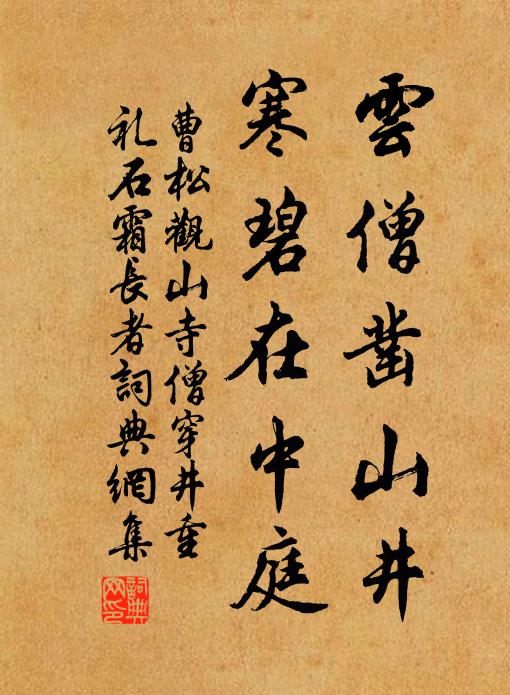 雲僧凿山井
寒碧在中庭
曹松觀山寺僧穿井重
礼石霜長者詞典網集
詞典網印